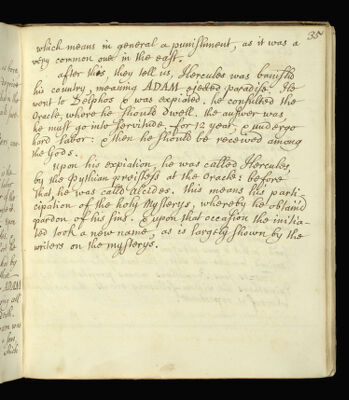 35
which means in general a punishment, as it was a
very common one in the east.
after this, they tell us, Hercules was banish'd
his country, meaning ADAM exiled paradise. He
went to Delphos & was expiated. he consulted the
Oracle, where he should dwell. the answer was,
he must go into servitude for 12 year, & undergo
hard labor: & then he should be received among
the Gods.
upon his expiation, he was called Hercules,
by the Pythian preistess at the Oracle: before
that, he was calld Alcides. this means his parti-
cipation of the holy Mysterys, whereby he obtain'd
pardon of his sins. & upon that occasion the initia-
ted took a new name, as is largely shown by the
writers on the mysterys.